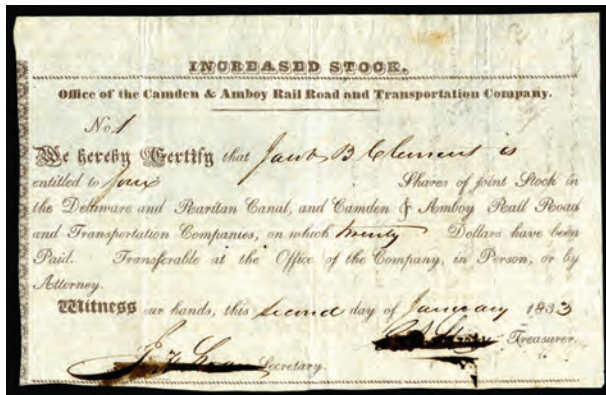 INCREASED STOCK.
Office of the Camden & Amboy Rail Road and Transportation Company.
No 1
We hereby Certify that Jacob B Clement is
entitled to four Shares of joint Stock in
the Delaware and Raritan Canal, and Camden & Amboy Rail Road
and Transportation Companies, on which twenty Dollars have been
Paid. Transferable at the Office of the Company, in Person, or by
Attorney.
Witness our hands, this second day of January 1833
Treasurer.
Secretary.